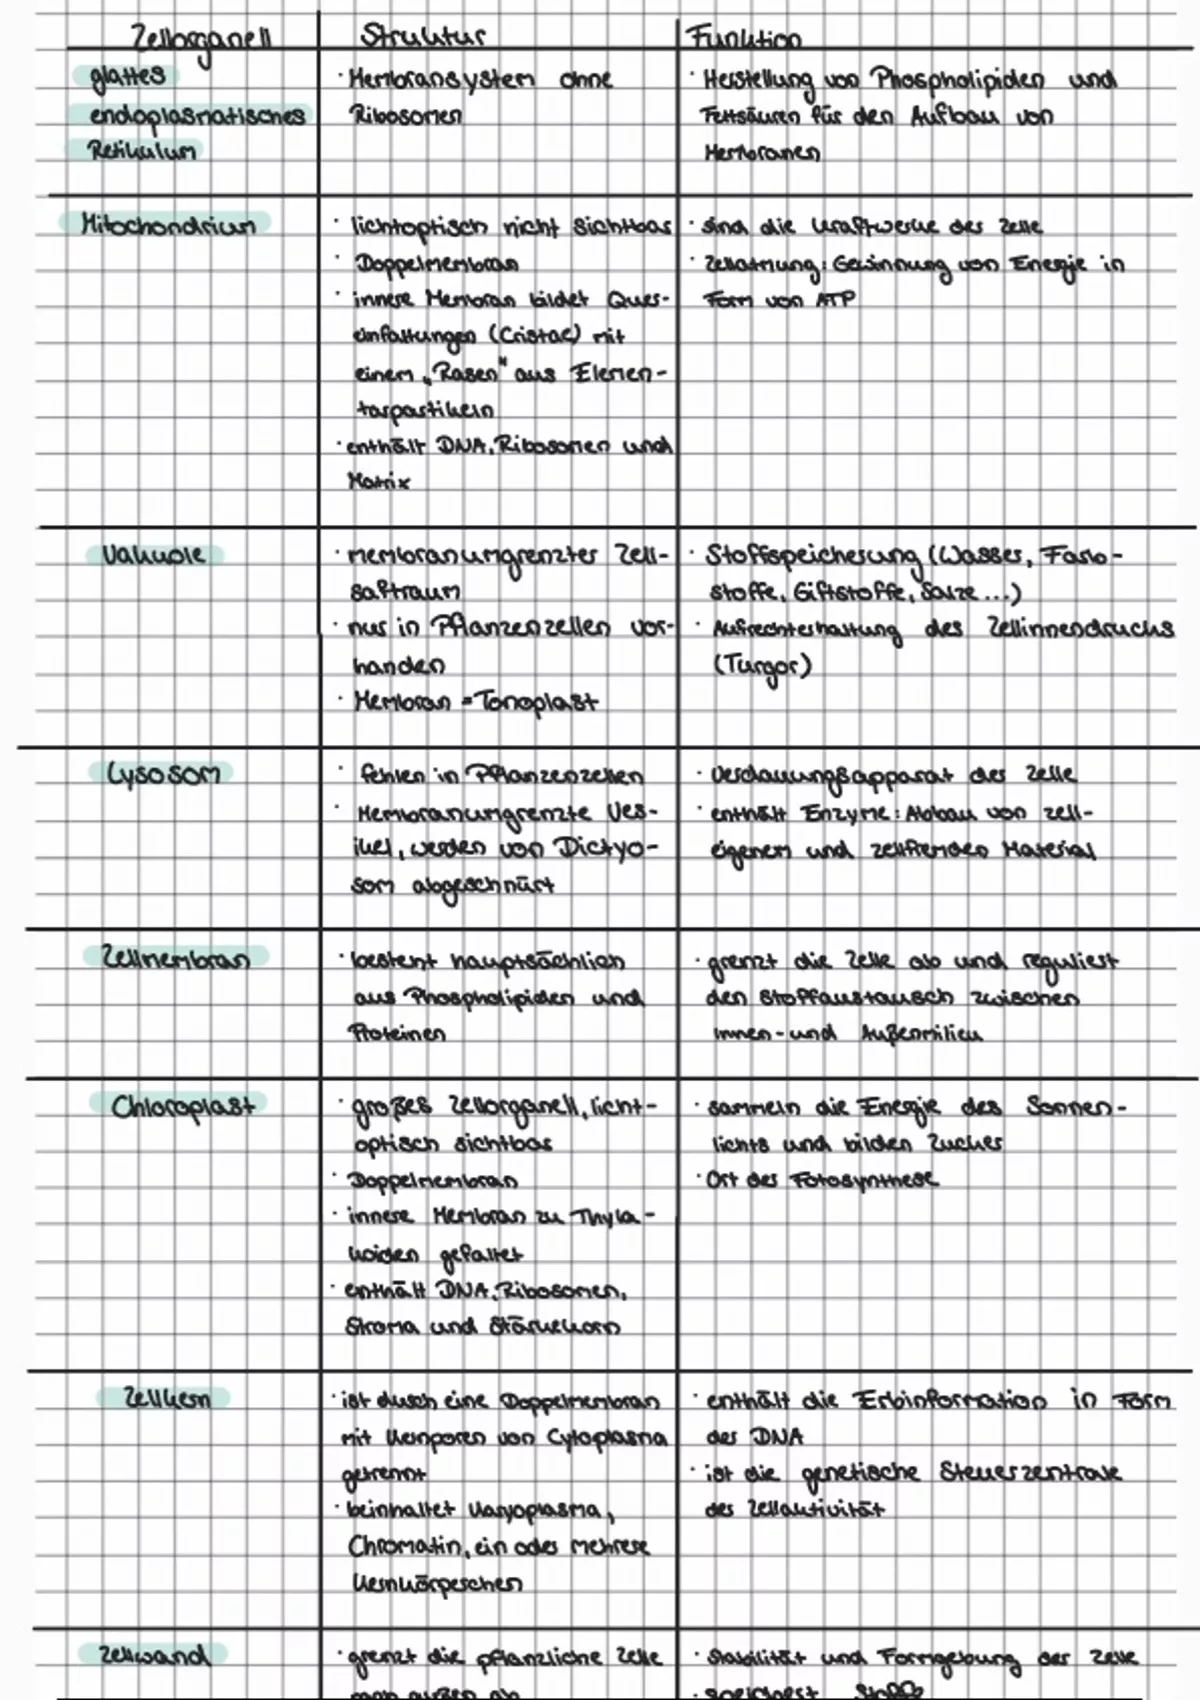 Zellorganell
Struktur
Funktion
glattes
endoplasmatisches
Retikulum
· Membransystem ohne
Ribosomen
· Herstellung von Phospholipiden und
Fettsäuren für den Aufbau von
Membranen
Mitochondrium
· lichtoptisch nicht sichtbar
· Doppelmembran
· innere Membran bildet Quer-
einfaltungen (Cristae) mit
einem „Rasen" aus Elemen-
tarpartikeln
· enthält DNA, Ribosomen und
Matrix
· sind die Kraftwerke der Zelle
· Zellatmung: Gewinnung von Energie in
Form von ATP
Vakuole
· membranumgrenzter Zell-
saftraum
· nur in Pflanzenzellen vor-
handen
· Membran = Tonoplast
· Stoffspeicherung (Wasser, Farb-
stoffe, Giftstoffe, Salze ...)
· Aufrechterhaltung des Zellinnendrucks
(Turgor)
Lysosom
· fehlen in Pflanzenzellen
· Membranumgrenzte Ves-
ikel, werden von Dictyo-
som abgeschnürt
· Verdauungsapparat der Zelle
· enthält Enzyme: Abbau von zell-
eigenem und zellfremden Material
Zellmembran
· besteht hauptsächlich
aus Phospholipiden und
Proteinen
· grenzt die Zelle ab und reguliert
den Stoffaustausch zwischen
Innen- und Außenmilieu
Chloroplast
· großes Zellorganell, licht-
optisch sichtbar
· Doppelmembran
· innere Membran zu Thyla-
koiden gefaltet
· enthält DNA, Ribosomen,
Stroma und Stärkekorn
· sammeln die Energie des Sonnen-
lichts und bilden Zucker
· Ort der Fotosynthese
Zellkern
· ist durch eine Doppelmembran
mit Kernporen von Cytoplasma
getrennt
· beinhaltet Karyoplasma,
Chromatin, ein oder mehrere
Kernkörperchen
· enthält die Erbinformation in Form
der DNA
· ist die genetische Steuerzentrale
der Zellaktivität
Zellwand
· grenzt die pflanzliche Zelle
nach außen ab
· Stabilität und Formgebung der Zelle
· speichert Stoffe